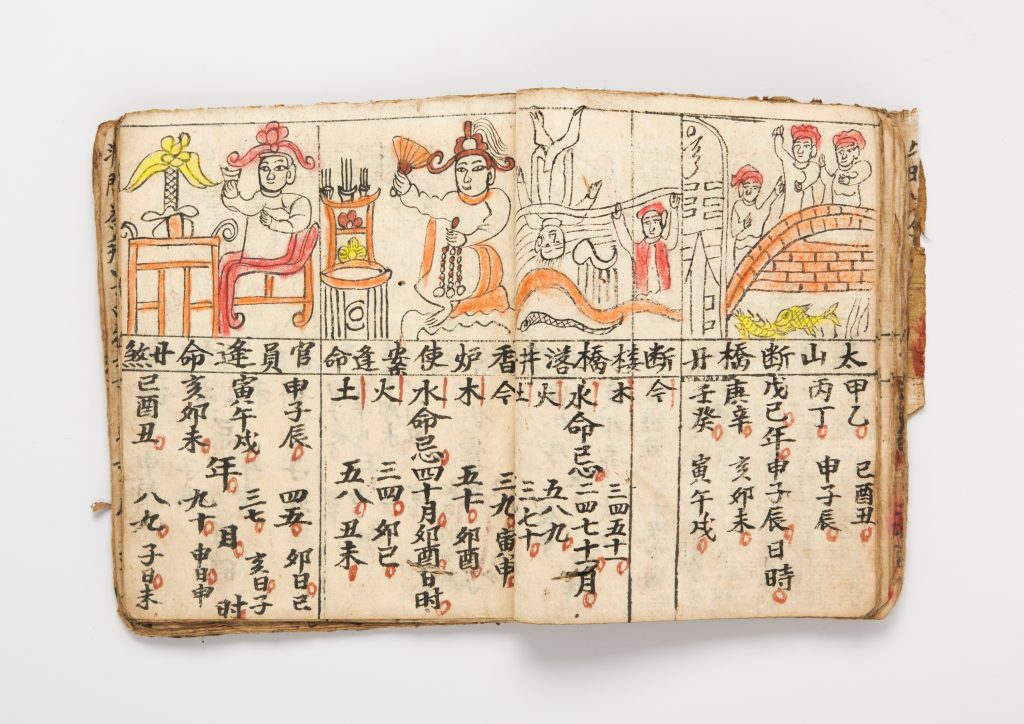 太山断橋廾
甲乙 巳酉丑
丙丁 申子辰
戊己年申子辰日時
庚辛 亥卯未
壬癸 寅午戌
断楼橋落井
今
木 三四五十
水命忌二四七十二月
火 五八九
土 三七十
香炉使案逢命
今 三九寅申
木 五十卯酉
水命忌四十月卯酉日时
火 三四卯巳
土 五八丑未
官員逢命廾煞
申子辰 四五 卯日巳
寅午戌 三七 亥日子
年月时
亥卯未 九十 申日申
巳酉丑 八九 子日未